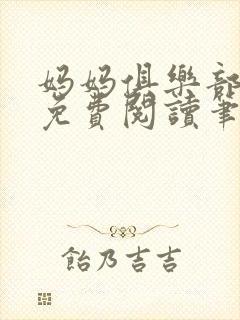 媽媽俱樂部
免費閱讀筆
飴乃吉吉